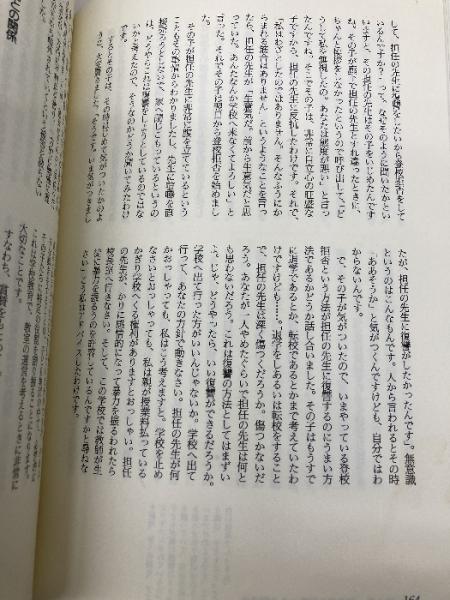 して、担任の先生に復讐をしたいから登校拒否をして
いるんですか？」って。なぜそのように問うたかとい
いますと、その担任の先生はその子をいじめたんです
ね。その子が廊下で担任の先生とすれ違ったときに、
ちゃんと挨拶をしなかったというので呼び出して、「ど
うして私を無視したの。あなたは態度が悪い」と言っ
たんですね。そこでその子は、非常に自立心の旺盛な
子ですから、担任の先生に反抗したわけです。「それで、
「私はわざとしたのではありません。そんなふうにか
らまれる筋合はありません」というようなことを言っ
たら、担任の先生が「生意気だ。前から生意気だと思
っていた。あんたなんか学校へ来なくてよろしい」と
言った。それでその子は翌日から登校拒否を始めまし
た。
その子が担任の先生に非常に腹を立てているという
こともその話からわかりましたし、先生に喧嘩を直
に
は、どうやらこれは復讐をしようとしているのではな
いかと考えたので、そうなのかどうか聞いてみたわけ
です。
するとその子は、その時はじめて気がついたかのよ
うに、大変驚きました。「そうです。いままで
たが、担任の先生に復讐がしたかったんです」。無意識
というのはこんなもんです。人から言われるとその時
「ああそうか」と気がつくんですけども、自分ではわ
からないんです。
で、その子が気がついたので、いまやっている登校
拒否という方法が担任の先生に復讐するのにうまい方
法であるかどうか話し合いました。その子はもうすで
に退学であるとか、転校であるとかまで考えていたわ
けですけども……退学をしあるいは転校をすること
で、担任の先生は深く傷つくだろうか。傷つかないだ
ろう。あなたが一人やめたぐらいで担任の先生は何と
も思わないだろう。これは復讐の方法としてはまずい
よ。じゃ、どうやったら、いい復讐ができるだろうか。
学校へ出て行った方がいいんじゃないか。学校へ出て
行って、あなたの方針で動きなさい。担任の先生が何
かおっしゃっても、私はこう考えますと、学校を止め
なさいとおっしゃっても、私は親が授業料払っている
かぎり学校へくる権利がありますとおっしゃい。担任
の先生が、かりに感情的になって暴力を振るわれたら
校長室へ行きなさい。そして、この学校では教師が生
徒に暴力を振るうのを許容しているんですかと尋ねな
さい。こう私はアドバイスしたわけです。
大切なことです。
すなわち、
164